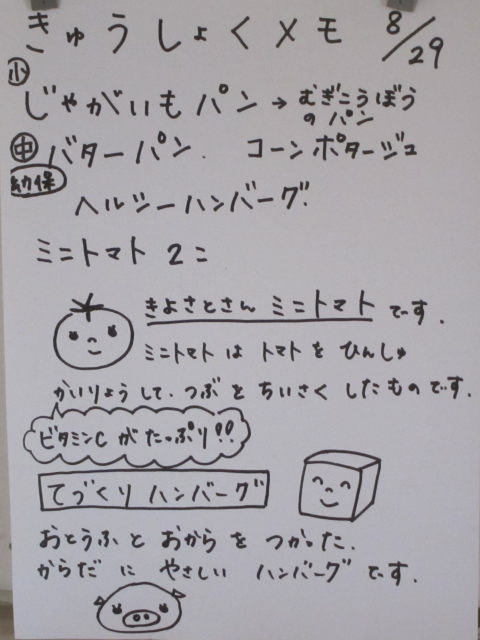 きゅうしょくメモ 8/29
小 じゃがいもパン→むぎこうぼう
のパン
中 バターパン. コーンポタージュ
幼保
ヘルシーハンバーグ.
ミニトマト 2こ
きよさとさん ミニトマト です.
ミニトマトは トマトを ひんしゅ
かいりょうして. つぶを ちいさく したものです.
ビタミンCがたっぷり!!
てづくり ハンバーグ
おとうふと おからを つかった.
からだに やさしい ハンバーグです.